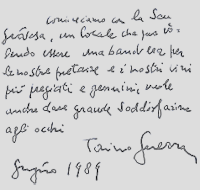 cominciamo con la San
giovesa, un locale che pur vo-
lendo essere una bandiera per
le nostre pietanze e i nostri vini
più pregiati e genuini vuole
anche dare grande soddisfazione
agli occhi
Tonino Guerra
Giugno 1989